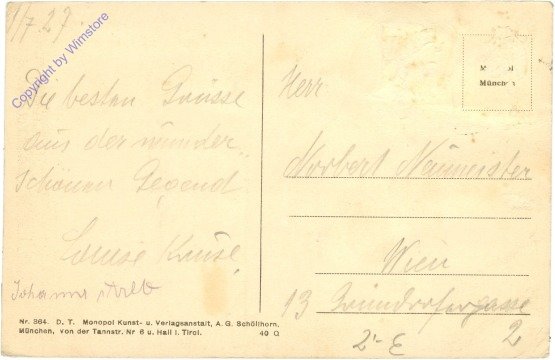 1/7 27
Copyright by Wimstore
Die besten Grüsse
aus der wunder-
schönen Gegend
Louise Krause
Johanna
Nr. 364. D. T. Monopol Kunst- u. Verlagsanstalt, A. G. Schöllhorn,
München, von der Tannstr. Nr 6 u. Hall i. Tirol. 40 Q
München
Herr
Norbert Neumeister
Wien
13
2
2'- E